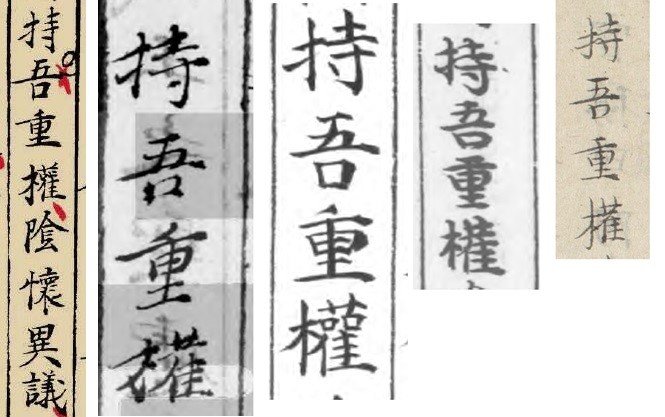 持吾重權陰懷異議
持吾重權
持吾重權
持吾重權
持吾重權